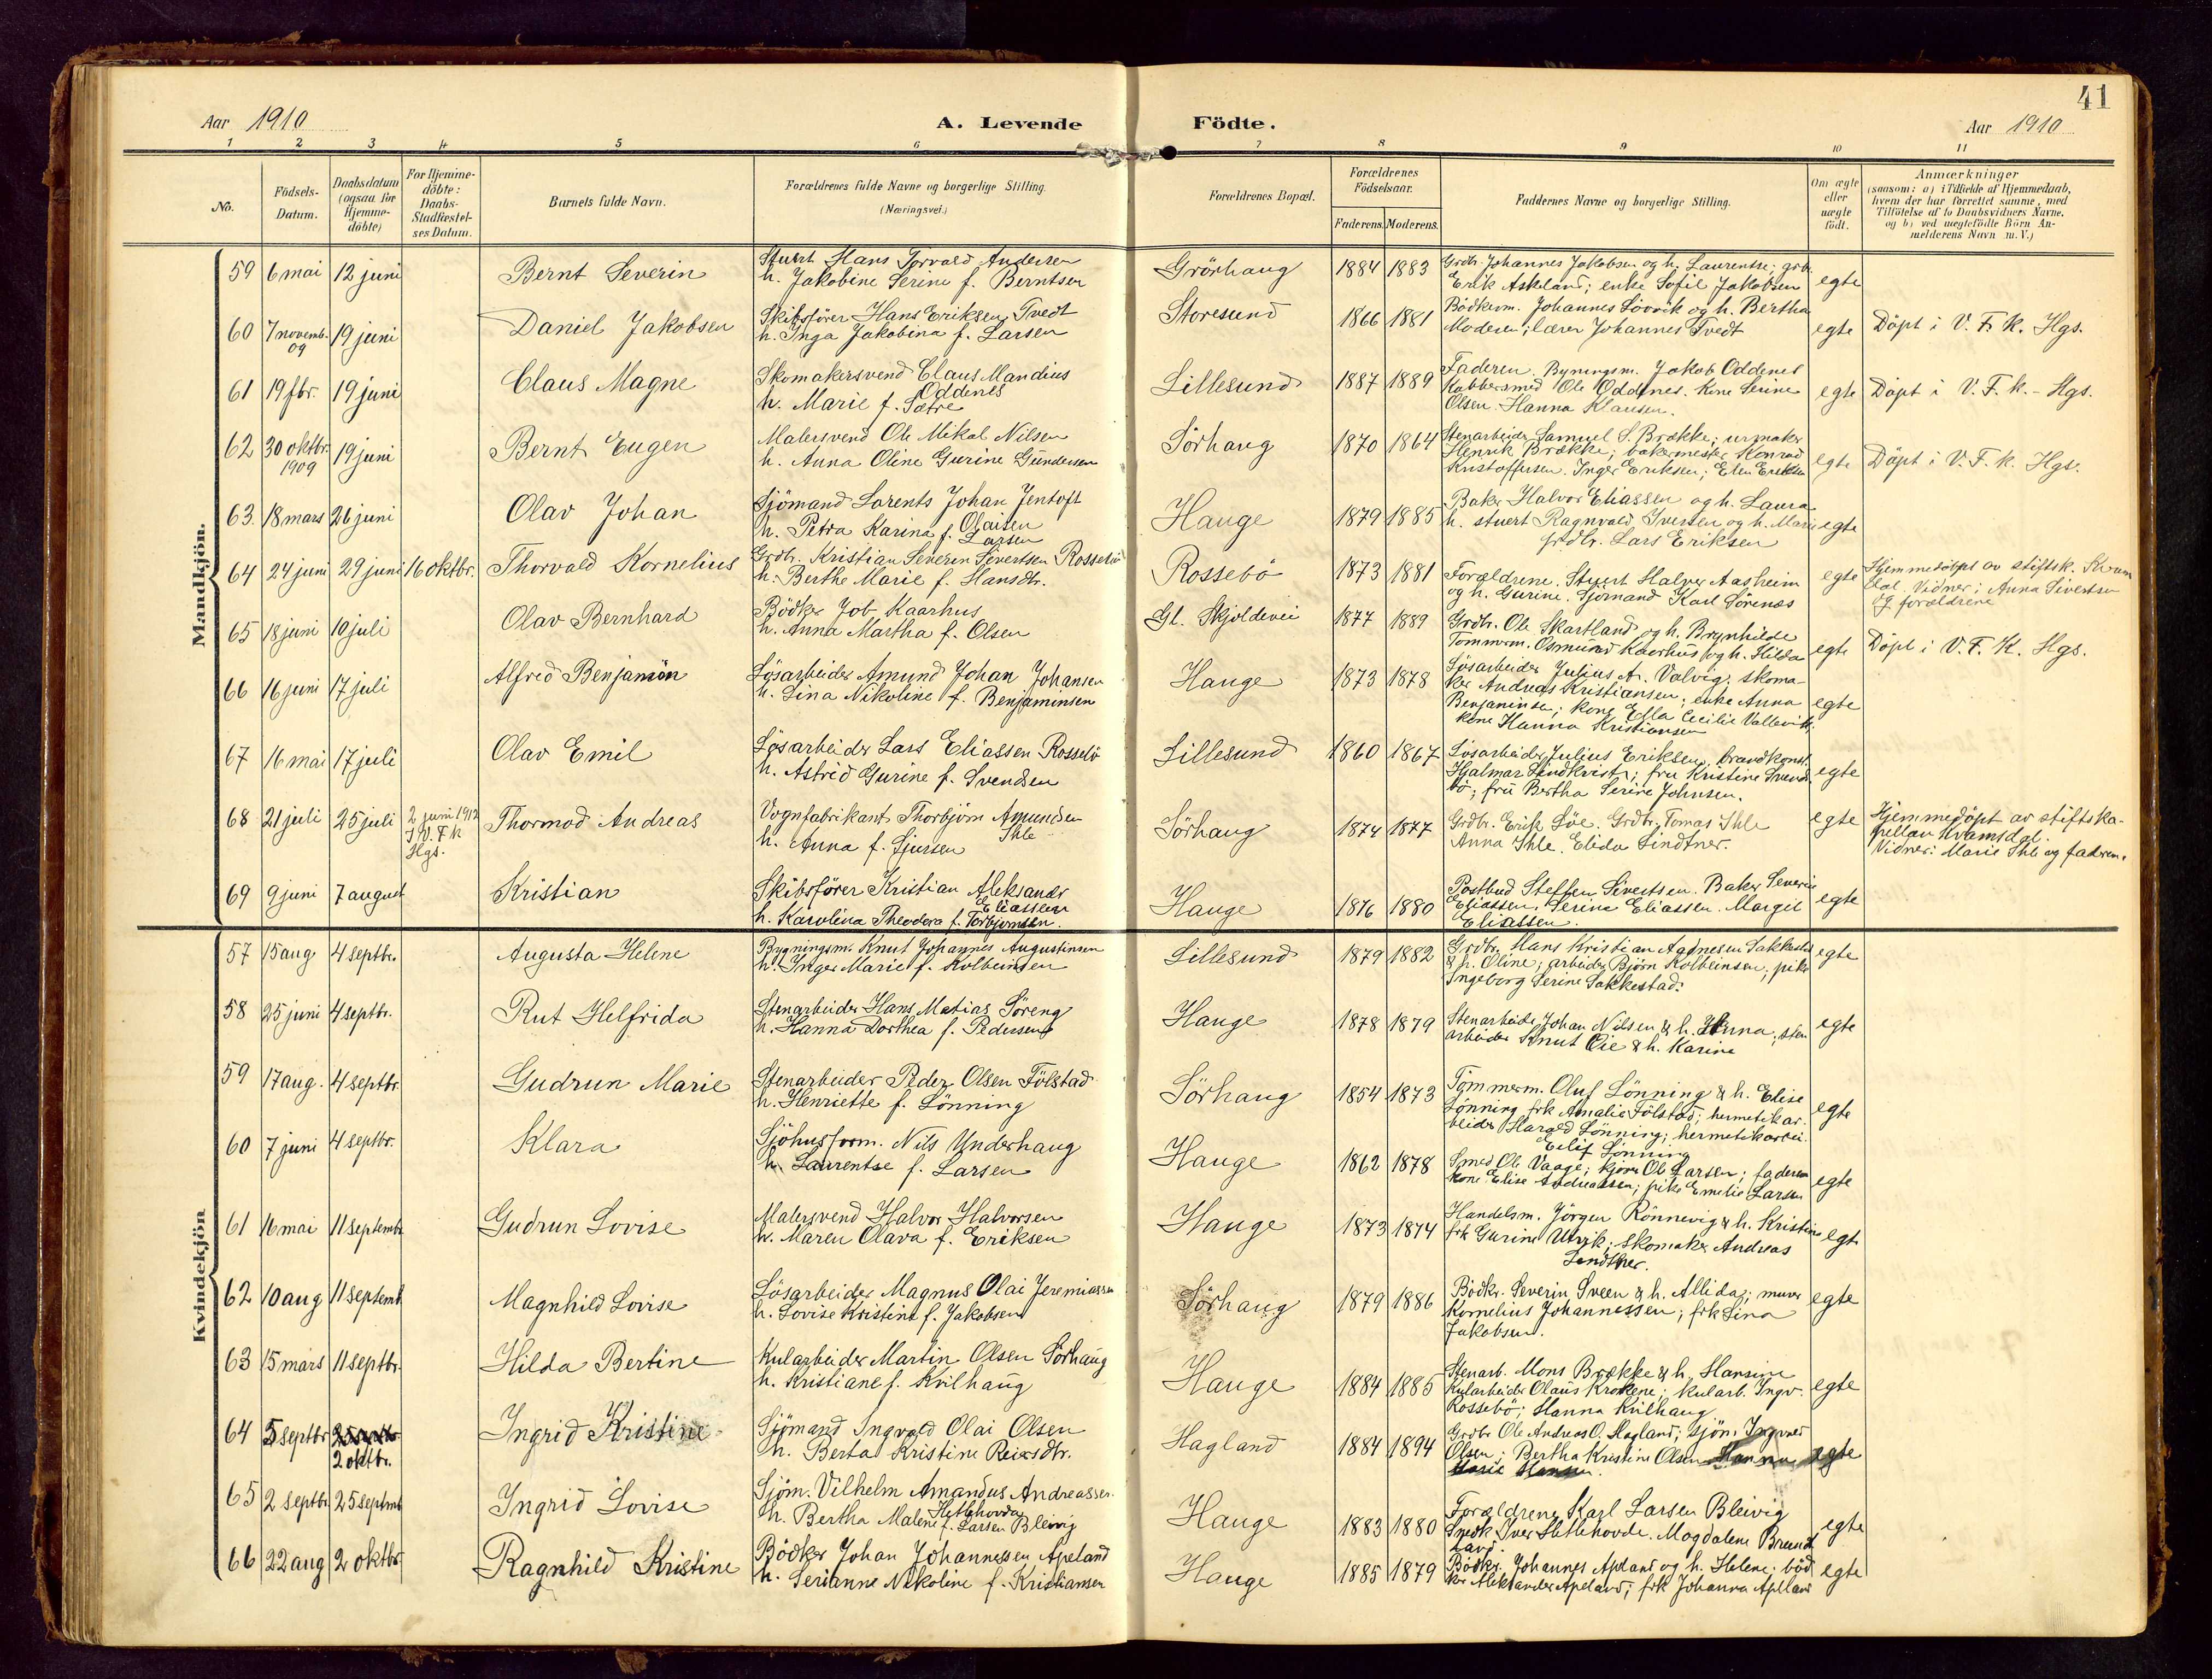 41
Aar 1910
A. Levende Födte.
Aar 1910
1 2 3 4 5 6 7 8 9 10 11
No.
Födsels-Datum.
Daabsdatum (ogsaa for Hjemme-döbte)
For Hjemme-döbte: Daabs-Stadfæstel-ses Datum.
Barnets fulde Navn.
Forældrenes fulde Navne og borgerlige Stilling.
(Næringsvei.)
Forældrenes Bopæl.
Forældrenes Födselsaar.
Faderens. Moderens.
Faddernes Navne og borgerlige Stilling.
Om ægte eller uægte födt.
Anmærkninger
(saasom: a) i Tilfælde af Hjemmedaab,
hvem der har forrettet samme, med
Tilföielse af to Daabsvidners Navne.
og b) ved uægtefödte Börn An-
melderens Navn m. V.)
Mandkjön.
59 6 mai 12 juni Bernt Severin
Stuert Hans Torvald Andersen
h. Jakobine Serine f. Berntsen
Grörhaug 1884 1883
Grdbr. Johannes Jakobsen og h. Laurentse; grb.
Erik Askeland; enke Sofie Jakobsen
egte
60 7 novemb. 09 19 juni Daniel Jakobsen
Skibsförer Hans Eriksen Tvedt
h. Inga Jakobina f. Larsen
Storesund 1866 1881
Bödkerm. Johannes Lövvik og h. Bertha
Moderen; lærer Johannes Tvedt
egte Döpt i V. F. K. Hgs.
61 19 fbr. 19 juni Claus Magne
Skomakersvend Claus Mandius
Oddenes
h. Marie f. Sætre
Lillesund 1887 1889
Faderen. Byningsm. Jakob Oddenes
Kobbersmed Ole Oddenes. Kone Serine
Olsen. Hanna Klausen.
egte Döpt i V. F. k. - Hgs.
62 30 oktbr. 1909 19 juni Bernt Eugen
Malersvend Ole Mikal Nilsen
h. Anna Oline Gurine Gundersen
Sörhaug 1870 1864
Stenarbeider Samuel S. Brække; urmaker
Henrik Brække; bakermester Konrad
Kristoffersen. Inger Eriksen; Elen Eriksen
egte Döpt i V. F. k. Hgs.
63. 18 mars 26 juni Olav Johan
Sjömand Lorents Johan Jentoft
Olausen
h. Petra Karina f. Larsen
Hauge 1879 1885
Baker Halvor Eliassen og h. Laura
h. stuert Ragnvald Iversen og h. Marie
grdbr. Lars Eriksen
egte
64 24 juni 29 juni 16 oktbr. Thorvald Kornelius
Grdbr. Kristian Severin Sivertsen Rossebö
h. Berthe Marie f. Hansdtr.
Rossebö 1873 1881
Forældrene. Stuert Halvor Aasheim
og h. Gurine. Sjömand Karl Sörenæs
egte Hjemmedöpt av stiftsk. Kvam
dal. Vidner: Anna Sivertsen
og forældrene
65 18 juni 10 juli Olav Bernhard
Bödker Job Kaarhus
h. Anna Martha f. Olsen
Gl. Skjoldevei 1877 1889
Grdbr. Ole Skartland og h. Brynhilde
Tömmerm. Osmund Kaarhus og h. Hilda
egte Döpt i V. F. K. Hgs.
66 16 juni 17 juli Alfred Benjamin
Lösarbeider Amund Johan Johansen
h. Lina Nikoline f. Benjaminsen
Hauge 1873 1878
Lösarbeider Julius A. Valvig; skoma-
ker Andreas Kristiansen; enke Anna
Benjaminsen; kone Ella Cecilie Vallevik;
kone Hanna Kristiansen
egte
67 16 mai 17 juli Olav Emil
Lösarbeider Lars Eliassen Rossebö
h. Astrid Gurine f. Svendsen
Lillesund 1860 1867
Lösarbeider Julius Eriksen; brandkonst.
Hjalmar Lindkvist; fru Kristine Svends
bö; fru Bertha Serine Johnsen.
egte
68 21 juli 25 juli 2 juni 1912 I V. F. k Hgs. Thormod Andreas
Vognfabrikant Thorbjörn Amundsen
Ihle
h. Anna f. Sjursen
Sörhaug 1874 1877
Grdbr. Erik Löe. Grdbr. Tomas Ihle
Anna Ihle. Elida Lindtner.
egte Hjemmedöpt av stiftska-
pellan Kvamsdal.
Vidner: Marie Ihle og faderen.
69 9 juni 7 august Kristian
Skibsförer Kristian Aleksander
Eliassen
h. Karolina Theodora f. Torbjornsen.
Hauge 1876 1880
Postbud Steffen Sivertsen. Baker Severin
Eliassen. Serine Eliassen. Margit
Eliassen.
egte
Kvindekjön
57 15 aug 4 septbr. Augusta Helene
Bygningsm. Knut Johannes Augustinsen
h. Inger Marie f. Kolbeinsen
Lillesund 1879 1882
Grdbr. Hans Kristian Aadnesen Sakkestad
& h. Oline; arbeider Björn Kolbeinsen; pike
Ingeborg Serine Sakkestad.
egte
58 25 juni 4 septbr. Rut Helfrida
Stenarbeider Hans Matias Söreng
h. Hanna Dorthea f. Pedersen
Hauge 1878 1879
Stenarbeider Johan Nilsen & h. Anna; sten
arbeider Knut Öie & h. Karine
egte
59 17 aug. 4 septbr. Gudrun Marie
Stenarbeider Peder Olsen Fölstad
h. Henriette f. Lönning
Sörhaug 1854 1873
Tömmerm. Oluf Lönning & h. Elise
Lönning frk Amalie Fölstad; hermetikar.
beider Harald Lönning; hermetikarbei.
Eilif Lönning
egte
60 7 juni 4 septbr. Klara
Sjöhusform. Nils Underhaug
h. Laurentse f. Larsen
Hauge 1862 1878
Smed Ole Vaage; kjörer Ole Larsen; faderen
kone Elise Andreassen; pike Emelie Larsen
egte
61 16 mai 11 septembr Gudrun Lovise
Malersvend Halvor Halvorsen
h. Maren Olava f. Eriksen
Hauge 1873 1874
Handelsm. Jörgen Rönnevig & h. Kristine
frk Gurine Utvik; skomaker Andreas
Lindtner.
egte
62 10 aug 11 septemb. Magnhild Lovise
Lösarbeider Magnus Olai Jeremiassen
h. Lovise Kristine f. Jakobsen
Sörhaug 1879 1886
Bödkr. Severin Sveen & h. Allida; murer
Kornelius Johannessen; frk Lina
Jakobsen.
egte
63 15 mars 11 septbr. Hilda Bertine
Kularbeider Martin Olsen Sörhaug
h. Kristiane f. Kvilhaug
Hauge 1884 1885
Stenarb. Mons Brække & h. Hansine
Kularbeider Olaus Krokene; kularb. Ingv.
Rossebö; Hanna Kvilhaug
egte
64 5 septbr 2 oktbr. Ingrid Kristine
Sjömand Ingvald Olai Olsen
h. Berta Kristine Reiersdtr.
Hagland 1884 1894
Grdbr Ole Andreas O. Hagland; sjöm. Ingvald
Olsen; Bertha Kristine Olsen Hanna
Marie Hansen.
egte
65 2 septbr. 25 septmb Ingrid Lovise
Sjöm. Vilhelm Amandus Andreassen
Hetlehovda
h. Bertha Malene f. Larsen Bleivig
Hauge 1883 1880
Forældrene Karl Larsen Bleivig
Snedk Iver Hetlehovde. Magdalene Brunst
egte
66 22 aug 2 oktbr Ragnhild Kristine
Bödker Johan Johannessen Apeland
h. Serianne Nikoline f. Kristiansen
Hauge 1885 1879
Bödkr. Johannes Apland og h. Helene; böd
ker Aleksander Apeland; frk Johanna Apeland
egte